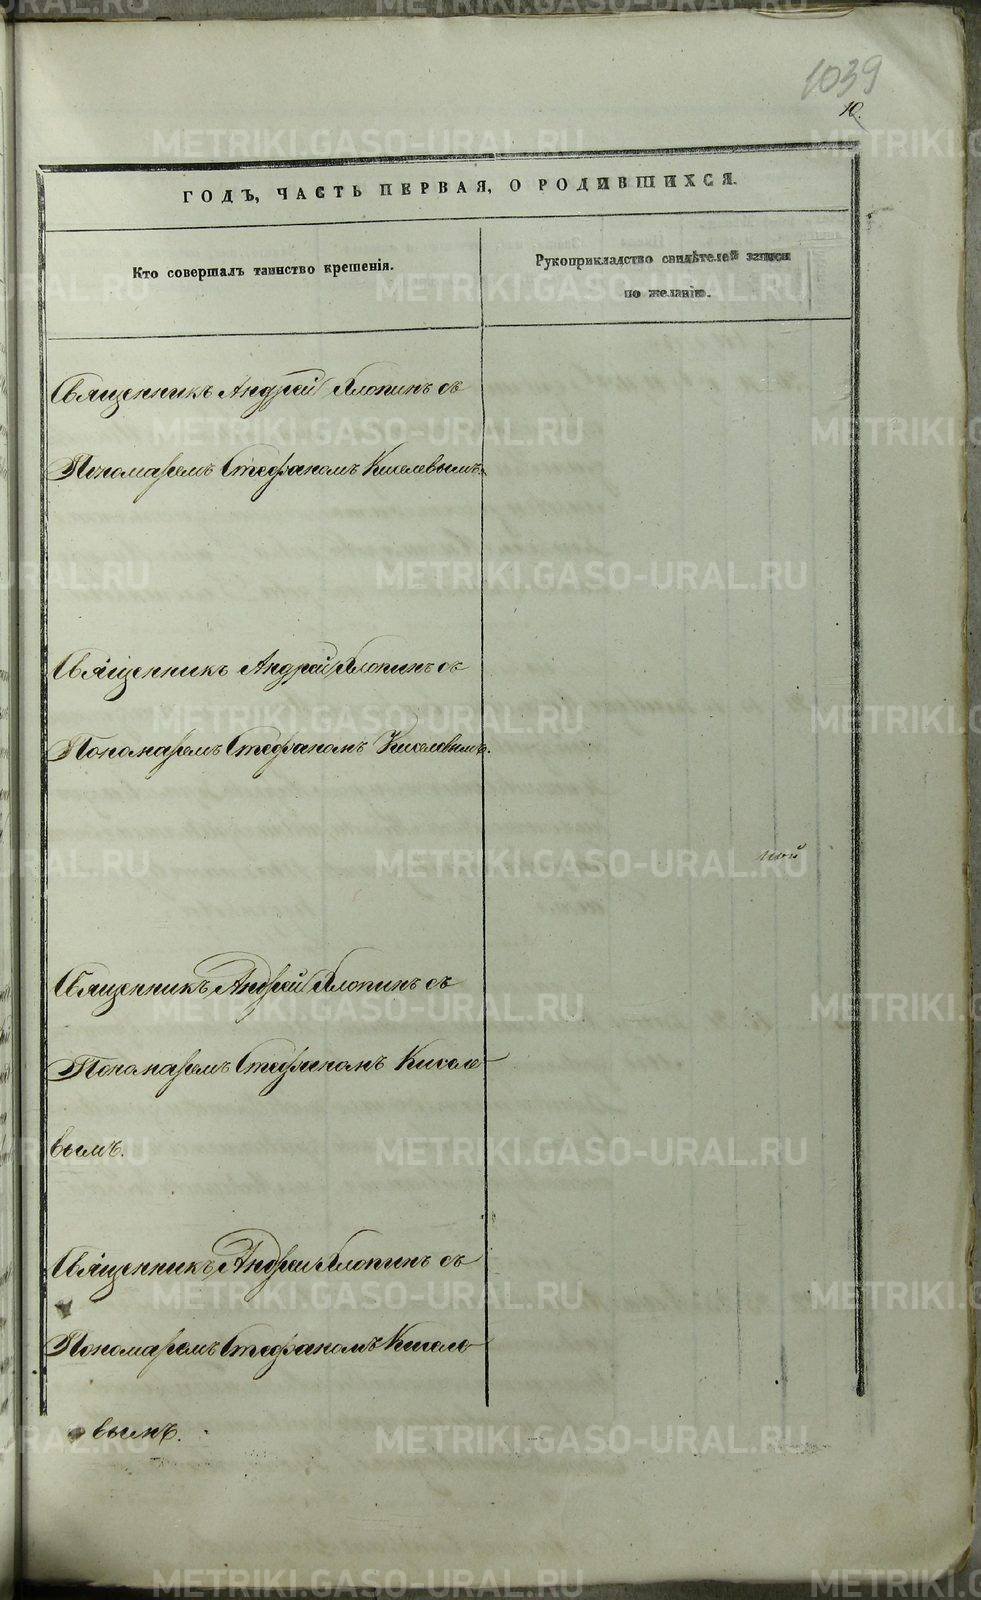 1039
10.
ГОДЪ, ЧАСТЬ ПЕРВАЯ, О РОДИВШИХСЯ.
Кто совершалъ таинство крещенія.
Рукоприкладство свидѣтелей записи
по желанію.
Священникъ Андрей Хлопинъ съ
Пономаремъ Стефаномъ Киселевымъ.
Священникъ Андрей Хлопинъ съ
Пономаремъ Стефаномъ Киселевымъ.
ной
Священникъ Андрей Хлопинъ съ
Пономаремъ Стефаномъ Кисele
вымъ.
Священникъ Андрей Хлопинъ съ
Пономаремъ Стефаномъ Киселе
вымъ.
METRIKI.GASO-URAL.RU